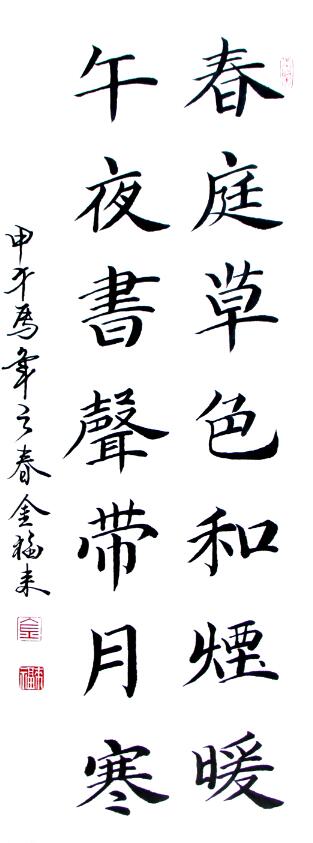 春庭草色和煙暖
午夜書聲带月寒
甲午馬年之春金福来